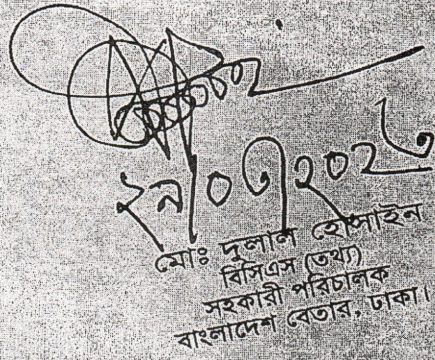 ২৯/০৩/২০২৩
মোঃ দুলাল হোসাইন
বিসিএস (তথ্য)
সহকারী পরিচালক
বাংলাদেশ বেতার, ঢাকা।